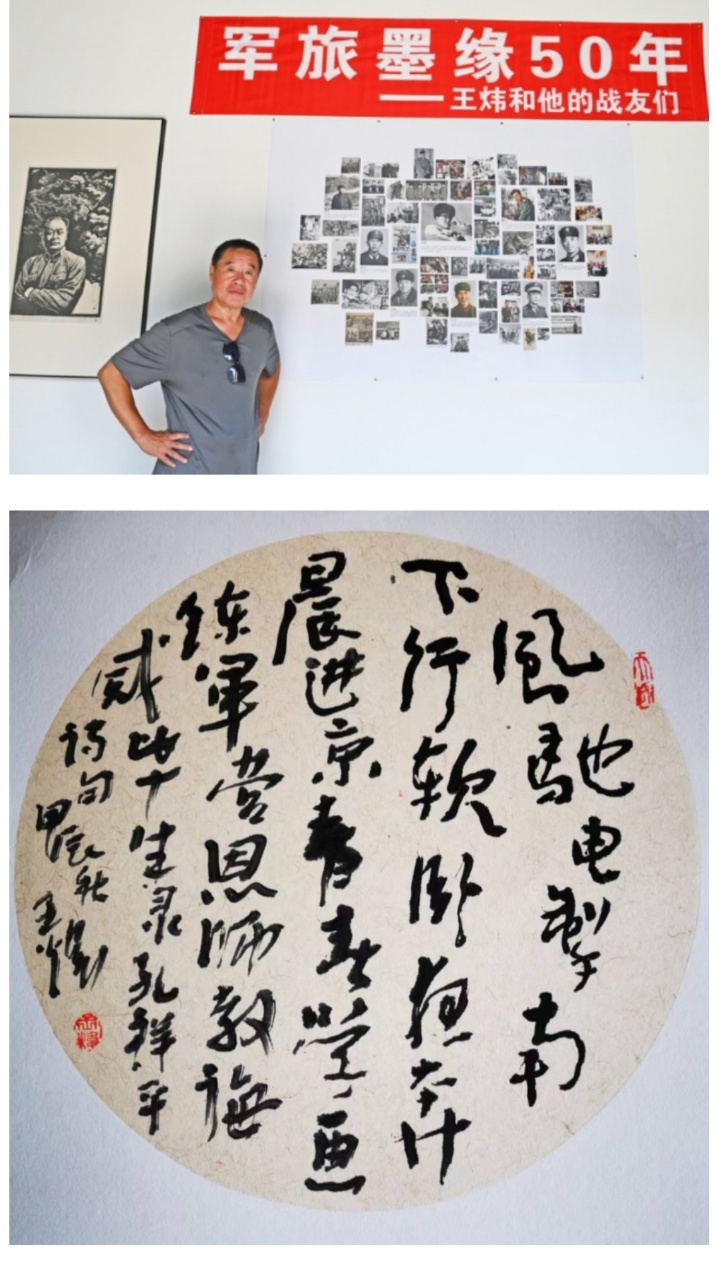 军旅墨缘50年
——王炜和他的战友们
風馳电掣南
下行软卧
晨进京青春学画
錬軍营恩师教诲
感毕生录孔祥平
诗句甲辰秋
王炜